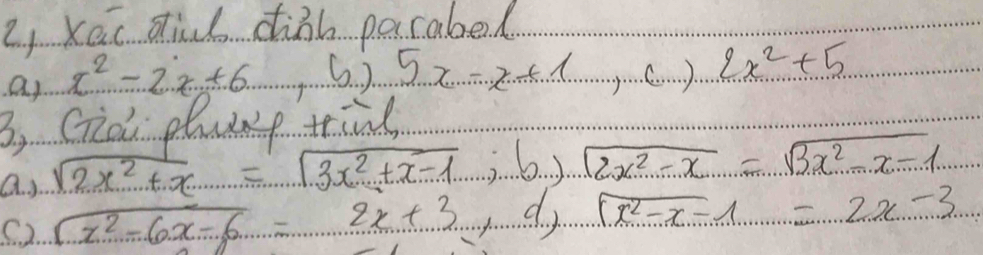 2, Xác định đỉnh parabol
a) x² - 2x + 6, b) 5x - x + 1, c) 2x² + 5
3, Giải phương trình
a) √(2x² + x) = √(3x² + x - 1); b) √(2x² - x) = √(3x² - x - 1)
c) √(x² - 6x - 6) = 2x + 3, d) √(x² - x - 1) = 2x - 3